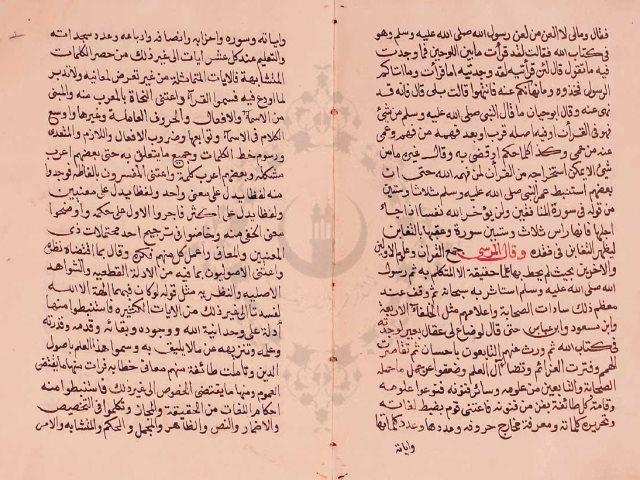 فقال ومالي لا العن من لعن رسول الله صلى الله عليه وسلم وهو
في كتاب الله فقالت لقد قرأت ما بين اللوحين فما وجدت
فيه ما تقول قال لئن قرأتيه لقد وجدتيه اما قرأت وما اتاكم
الرسول فخذوه وما نهاكم عنه فانتهوا قالت بلى قال فانه قد
نهى عنه وقال ابن برجان ما قال النبي صلى الله عليه وسلم من شئ
فهو في القرآن او فيه اصله قرب او بعد فهمه من فهم وعمي
عنه من عمي وكذا كلما حكم او قضى به وقال غيره ما من
شئ الا يمكن استخراجه من القرآن لمن فهمه الله حتى ان
بعضهم استنبط عمر النبي صلى الله عليه وسلم ثلاثا وستين
من قوله في سورة المنافقين ولن يؤخر الله نفسا اذا جاء
اجلها فانها راس ثلاث وستين سورة وعقبها بالتغابن
ليظهر التغابن في فقده وقال المرسي جمع القرآن علوم الاولين
والاخرين بحيث لم يحط بها علما حقيقة الا المتكلم به ثم رسول
الله صلى الله عليه وسلم استاثر به سبحانه ثم ورث عنه
معظم ذلك سادات الصحابة واعلامهم مثل الخلفاء الاربعة
وابن مسعود وابن عباس حتى قال لو ضاع لي عقال بعير لوجدته
في كتاب الله ثم ورث عنهم التابعون باحسان ثم تقاصرت
الهمم وفترت العزائم وتضاءل اهل العلم وضعفوا عن حمل ما حمله
الصحابة والتابعين من علومه وسائر فنونه فنوعوا علومه
وقامت كل طائفة بفن من فنونه فاعتنى قوم بضبط لغاته
وتحرير كلماته ومعرفة مخارج حروفه وعددها وعدد كلماتها
واياته
واياته وسوره واحزابه وانصافه وارباعه وعدد سجداته
والتعليم عند كل عشر ايات الى غير ذلك من حصر الكلمات
المتشابهة والايات المتماثلة من غير تعرض لمعانيه ولا تدبر
لما اودع فيه فسموا القراء واعتنى النحاة بالمعرب منه والمبني
من الاسماء والافعال والحروف العاملة وغيرها واوسع
الكلام في الاسماء وتوابعها وضروب الافعال واللازم والمتعدي
ورسوم خط الكلمات وجميع ما يتعلق به حتى بعضهم اعرب
مشكله وبعضهم اعرب كلمة واعتنى المفسرون بالفاظه فوجدوا
منه لفظا يدل على معنى واحد ولفظا يدل على معنيين
ولفظا يدل على اكثر فاجروا الاول على حكمه واوضحوا
معنى الخفي منه وخاضوا في ترجيح احد محتملات ذي
المعنيين والمعاني واعمل كل منهم فكره وقال بما اقتضاه نظره
واعتنى الاصوليون بما فيه من الادلة القطعيه والشواهد
الاصليه والنظريه مثل قوله لو كان فيهما الهة الا الله
لفسدتا الى غير ذلك من الايات الكثيره فاستنبطوا منها
ادلة على وحدانية الله ووجوده وبقائه وقدمه وقدرته
وعلمه وتنزيهه عن ما لا يليق به وسموا هذا العلم باصول
الدين وتاملت طائفة منهم معاني خطابه فرات منها ما يقتضي
العموم ومنها ما يقتضي الخصوص الى غير ذلك فاستنبطوا منه
احكام اللغات من الحقيقة والمجاز وتكلموا في التخصيص
والاضمار والنص والظاهر والمجمل والمحكم والمتشابه والامر